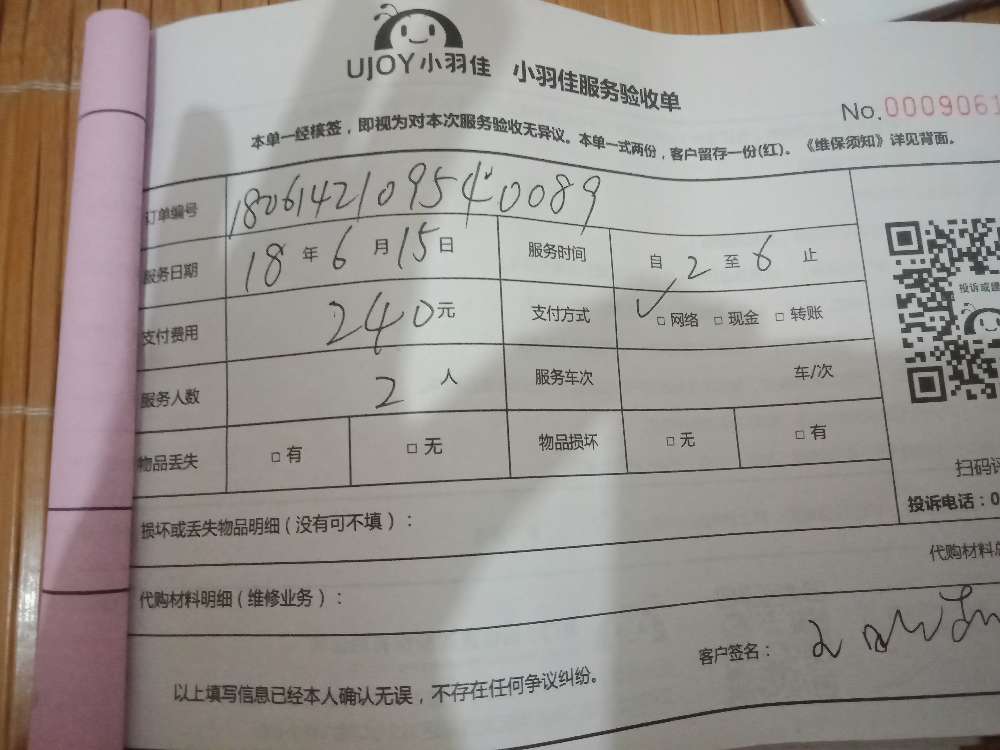 UJOY小羽佳 小羽佳服务验收单
No.0009061
本单一经核签，即视为对本次服务验收无异议。本单一式两份，客户留存一份(红)。《维保须知》详见背面。
订单编号 180614210954 0089
服务日期 18 年 6 月 15 日 服务时间 自 2 至 6 止
投诉或建
支付费用 240 元 支付方式 ✓ □ 网络 □ 现金 □ 转账
服务人数 2 人 服务车次 车/次
物品丢失 □ 有 □ 无 物品损坏 □ 无 □ 有
扫码评
投诉电话：0
损坏或丢失物品明细（没有可不填）：
代购材料总
代购材料明细（维修业务）：
客户签名：
以上填写信息已经本人确认无误，不存在任何争议纠纷。